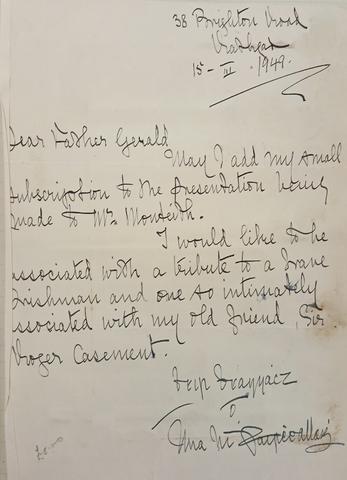 38 Brighton Road
Rathgar
15 - III . 1949.
Dear Father Gerald
May I add my small
subscription to the presentation being
made to Mr Monteith.
I would like to be
associated with a tribute to a brave
Irishman and one so intimately
associated with my old friend, Sir
Roger Casement.
Una Ní